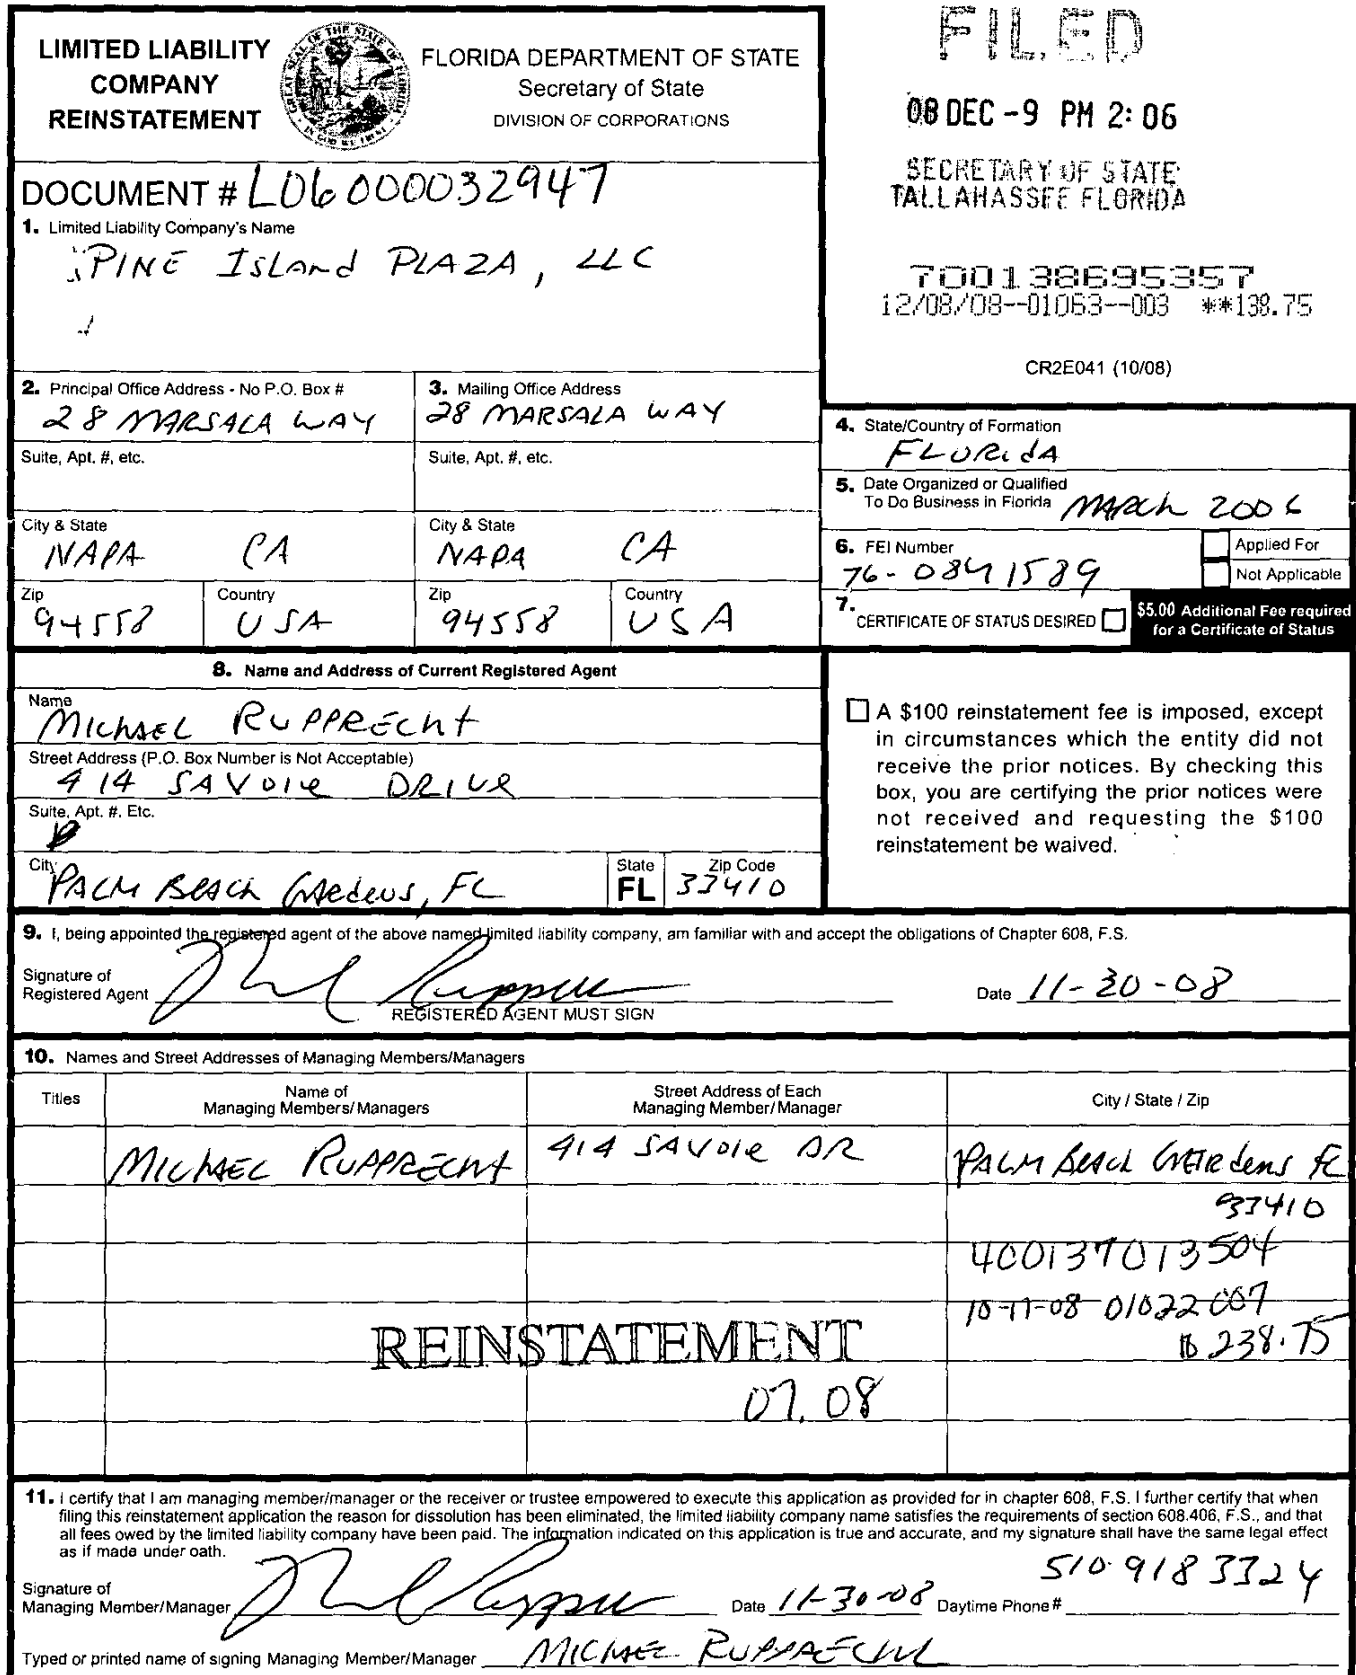 LIMITED LIABILITY
COMPANY
REINSTATEMENT
FLORIDA DEPARTMENT OF STATE
Secretary of State
DIVISION OF CORPORATIONS
FILED
08 DEC -9 PM 2: 06
SECRETARY OF STATE
TALLAHASSEE FLORIDA
DOCUMENT # L06000032947
1. Limited Liability Company's Name
PINE ISLAnd PLAZA, LLC
700138695357
12/08/08--01063--003 **138.75
CR2E041 (10/08)
2. Principal Office Address - No P.O. Box #
28 MARSALA WAY
3. Mailing Office Address
28 MARSALA WAY
Suite, Apt. #, etc.
Suite, Apt. #, etc.
City & State
NAPA CA
City & State
NAPA CA
Zip
94558
Country
USA
Zip
94558
Country
USA
4. State/Country of Formation
FLORidA
5. Date Organized or Qualified
To Do Business in Florida MARCh 2006
6. FEI Number
76-0841589
Applied For
Not Applicable
7. CERTIFICATE OF STATUS DESIRED
$5.00 Additional Fee required
for a Certificate of Status
8. Name and Address of Current Registered Agent
Name
MIChAEL RUPPRECht
Street Address (P.O. Box Number is Not Acceptable)
414 SAVOIe DRIVe
Suite, Apt. #. Etc.
City
PALM BEACh GARdens, FL
State
FL
Zip Code
33410
A $100 reinstatement fee is imposed, except
in circumstances which the entity did not
receive the prior notices. By checking this
box, you are certifying the prior notices were
not received and requesting the $100
reinstatement be waived.
9. I, being appointed the registered agent of the above named limited liability company, am familiar with and accept the obligations of Chapter 608, F.S.
Signature of
Registered Agent
Date 11-30-08
REGISTERED AGENT MUST SIGN
10. Names and Street Addresses of Managing Members/Managers
Titles
Name of
Managing Members/Managers
Street Address of Each
Managing Member/Manager
City / State / Zip
MIChAEL RUPPRECht 414 SAVOIe DR PALM BEACh GARdens FL
33410
400137013504
10-17-08 01022 007
238.75
REINSTATEMENT
07.08
11. I certify that I am managing member/manager or the receiver or trustee empowered to execute this application as provided for in chapter 608, F.S. I further certify that when
filing this reinstatement application the reason for dissolution has been eliminated, the limited liability company name satisfies the requirements of section 608.406, F.S., and that
all fees owed by the limited liability company have been paid. The information indicated on this application is true and accurate, and my signature shall have the same legal effect
as if made under oath.
Signature of
Managing Member/Manager
Date 11-30-08 Daytime Phone # 510 918 3324
Typed or printed name of signing Managing Member/Manager MIChAEL RUPPRECht